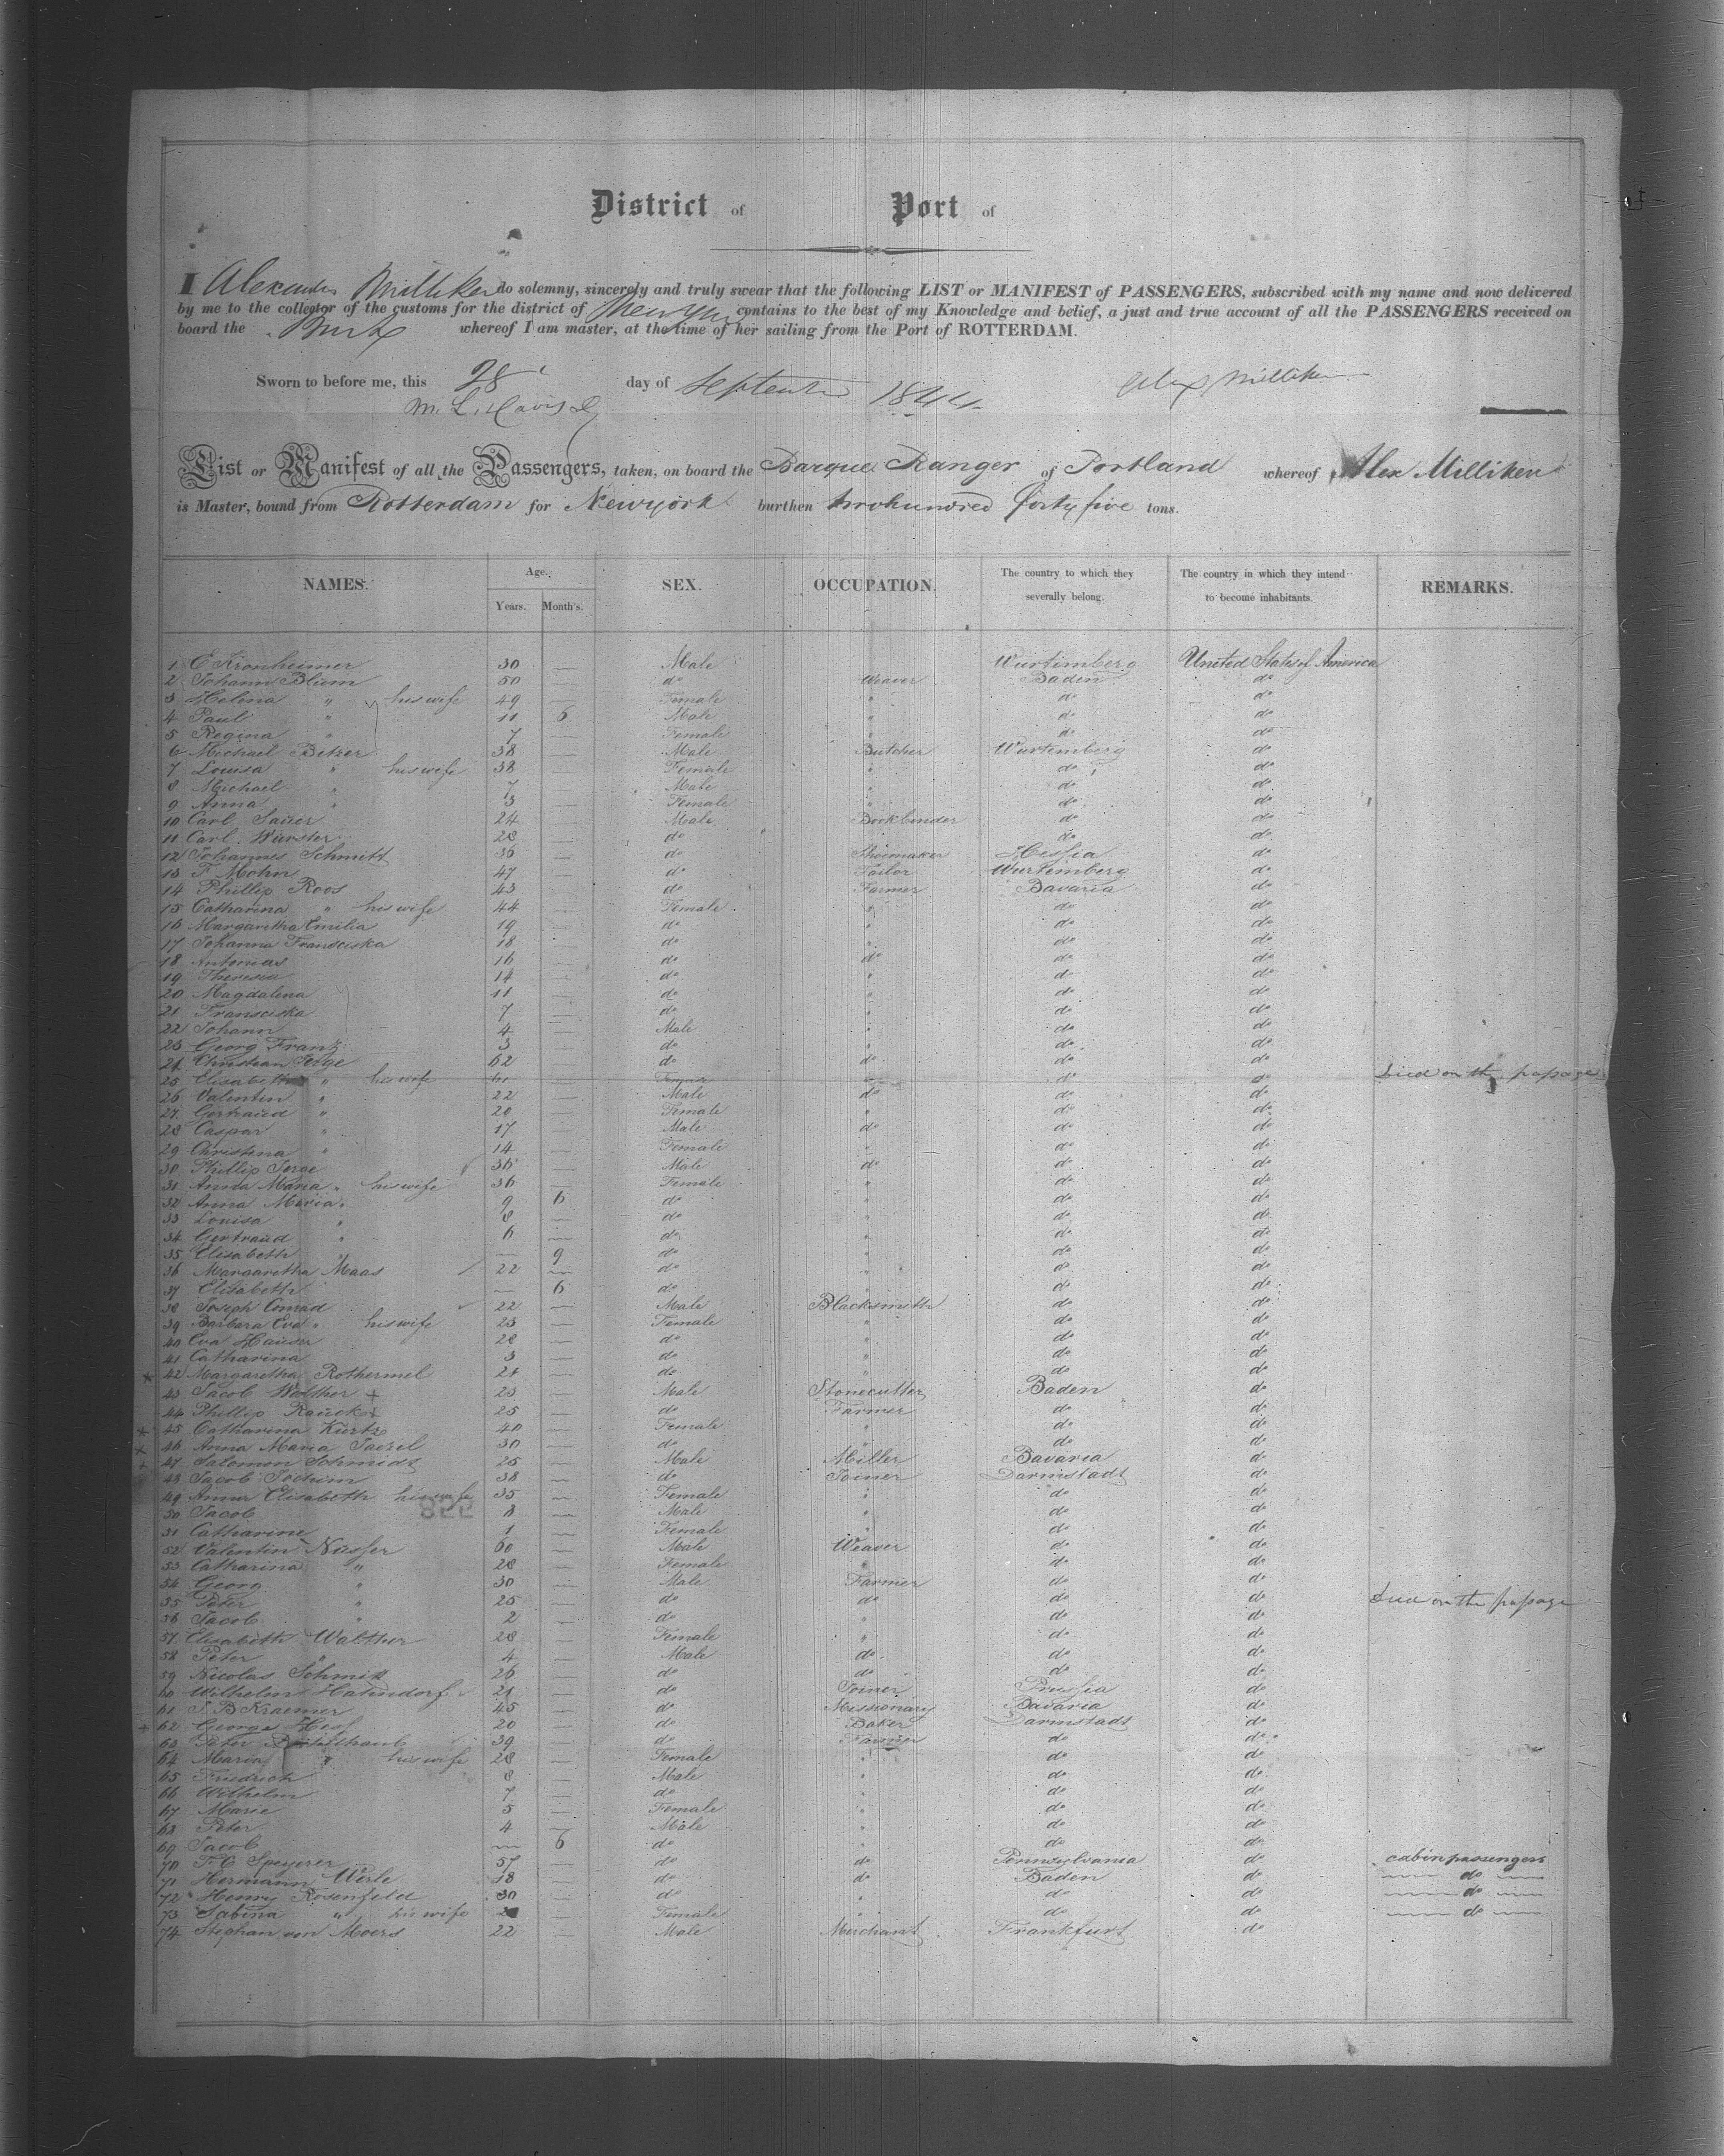 District of Port of
I Alexander Milliken do solemny, sincerely and truly swear that the following LIST or MANIFEST of PASSENGERS, subscribed with my name and now delivered
by me to the collector of the customs for the district of New York contains to the best of my Knowledge and belief, a just and true account of all the PASSENGERS received on
board the whereof I am master, at the time of her sailing from the Port of ROTTERDAM.
Sworn to before me, this 28 day of September 1844. Alex Milliken
M. L. Davis
List or Manifest of all the Passengers, taken, on board the Barque Ranger of Portland whereof Alex Milliken
is Master, bound from Rotterdam for Newyork burthen twohundred forty five tons.
NAMES. Age. Years. Month's. SEX. OCCUPATION. The country to which they severally belong. The country in which they intend to become inhabitants. REMARKS.
1 C Kronheimer 30 — Male Wurtimberg United States of America
2 Johann Blum 50 — do Weaver Baden do
3 Helena " his wife 49 — Female " do do
4 Paul " 11 6 Male " do do
5 Regina " 7 — Female " do do
6 Michael Betzer 38 — Male Butcher Wurtemberg do
7 Louisa " his wife 38 — Female " do do
8 Michael " 7 — Male " do do
9 Anna " 3 — Female " do do
10 Carl Sauer 24 — Male Bookbinder do do
11 Carl Wurster 28 — do do do
12 Johannes Schmitt 36 — do Shoemaker Hessia do
13 F Mohn 47 — do Tailor Wurtemberg do
14 Phillip Roos 43 — do Farmer Bavaria do
15 Catharina " his wife 44 — Female " do do
16 Margaretha Emilia 19 — do " do do
17 Johanna Fransciska 18 — do " do do
18 Antonias 16 — do do do do
19 Theresia 14 — do " do do
20 Magdalena 11 — do " do do
21 Fransciska 7 — do " do do
22 Johann 4 — Male " do do
23 Georg Frantz 3 — do " do do
24 Christian Jorge 62 — do do do do
25 Elisabetha " his wife — Female " do do died on the passage
26 Valentin " 22 — Male do do do
27 Gertraud " 20 — Female " do do
28 Caspar " 17 — Male do do do
29 Christina " 14 — Female " do do
30 Phillip Jorge 36 — Male do do do
31 Anna Maria " his wife 36 — Female " do do
32 Anna Maria " 9 6 do " do do
33 Louisa " 8 — do " do do
34 Gertraud " 6 — do " do do
35 Elisabeth " — 9 do " do do
36 Margaretha Maas 22 — do " do do
37 Elisabeth — 6 do " do do
38 Joseph Conrad 22 — Male Blacksmith do do
39 Barbara Eva " his wife 23 — Female " do do
40 Eva Hauser 28 — do " do do
41 Catharina 3 — do " do do
42 Margaretha Rothermel 24 — do " do do
43 Jacob Walther + 23 — Male Stonecutter Baden do
44 Phillip Rauck + 25 — do Farmer do do
45 Catharina Kurtz 40 — Female " do do
46 Anna Maria 30 — do " do do
47 Salomon Schmidt 25 — Male Miller Bavaria do
48 Jacob Jochim 38 — do Joiner Darmstadt do
49 Anna Elisabeth his wife 35 — Female " do do
50 Jacob 8 — Male " do do
51 Catharine 1 — Female " do do
52 Valentin Nusser 60 — Male Weaver do do
53 Catharina " 28 — Female " do do
54 Georg " 30 — Male Farmer do do
55 Peter " 25 — do do do do died on the passage
56 Jacob " 2 — do " do do
57 Elisabeth Walther 28 — Female " do do
58 Peter " 4 — Male do do do
59 Nicolas Schmitt 26 — do do do do
60 Wilhelm Hahndorf 24 — do Joiner Prussia do
61 J B Kraemer 45 — do Missionary Bavaria do
62 George Hess 20 — do Baker Darmstadt do
63 Peter 39 — do Farmer do do
64 Maria " his wife 28 — Female " do do
65 Friedrich 8 — Male " do do
66 Wilhelm 7 — do " do do
67 Marie 5 — Female " do do
68 Peter 4 — Male " do do
69 Jacob — 6 do " do do
70 F C Speyerer 57 — do do Pennsylvania do cabin passengers
71 Hermann Werle 18 — do do Baden do — do —
72 Henry Rosenfeld 30 — do " do do — do —
73 Sabina " his wife — Female " do do — do —
74 Stephan von Moers 22 — Male Merchant Frankfurt do